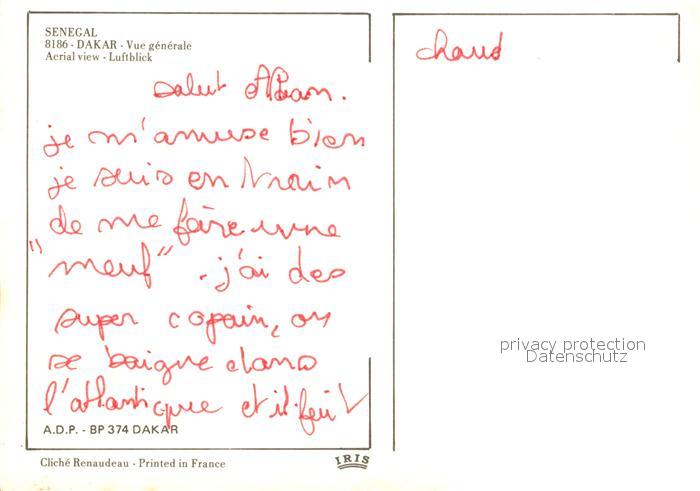 SENEGAL
8186 - DAKAR - Vue générale
Aerial view - Luftblick
salut Alban.
je m'amuse bien
je suis en train
de me faire une
"meuf" . j'ai des
super copain, on
se baigne dans
l'atlantique et il feu
chaud
privacy protection
Datenschutz
A.D.P. - BP 374 DAKAR
Cliché Renaudeau - Printed in France
IRIS